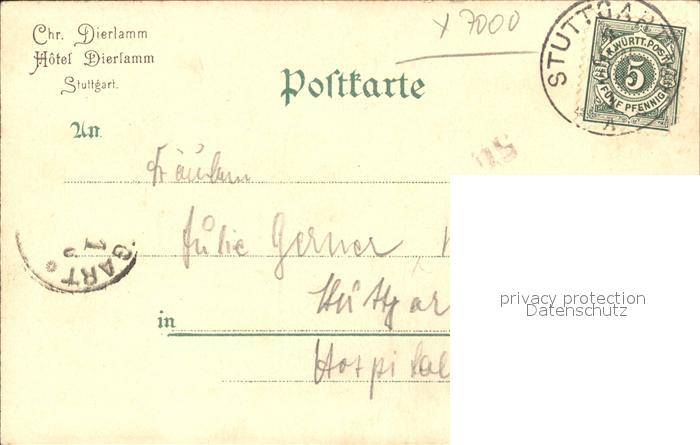 Chr. Dierlamm
Hôtel Dierlamm
Stuttgart.
x 7000
STUTTGART
K. WÜRTT. POST
5
FÜNF PFENNIG
A
Postkarte
An
Fräulein
Julie Gerner
Stuttgar
in
Hospital
GART
1
privacy protection
Datenschutz